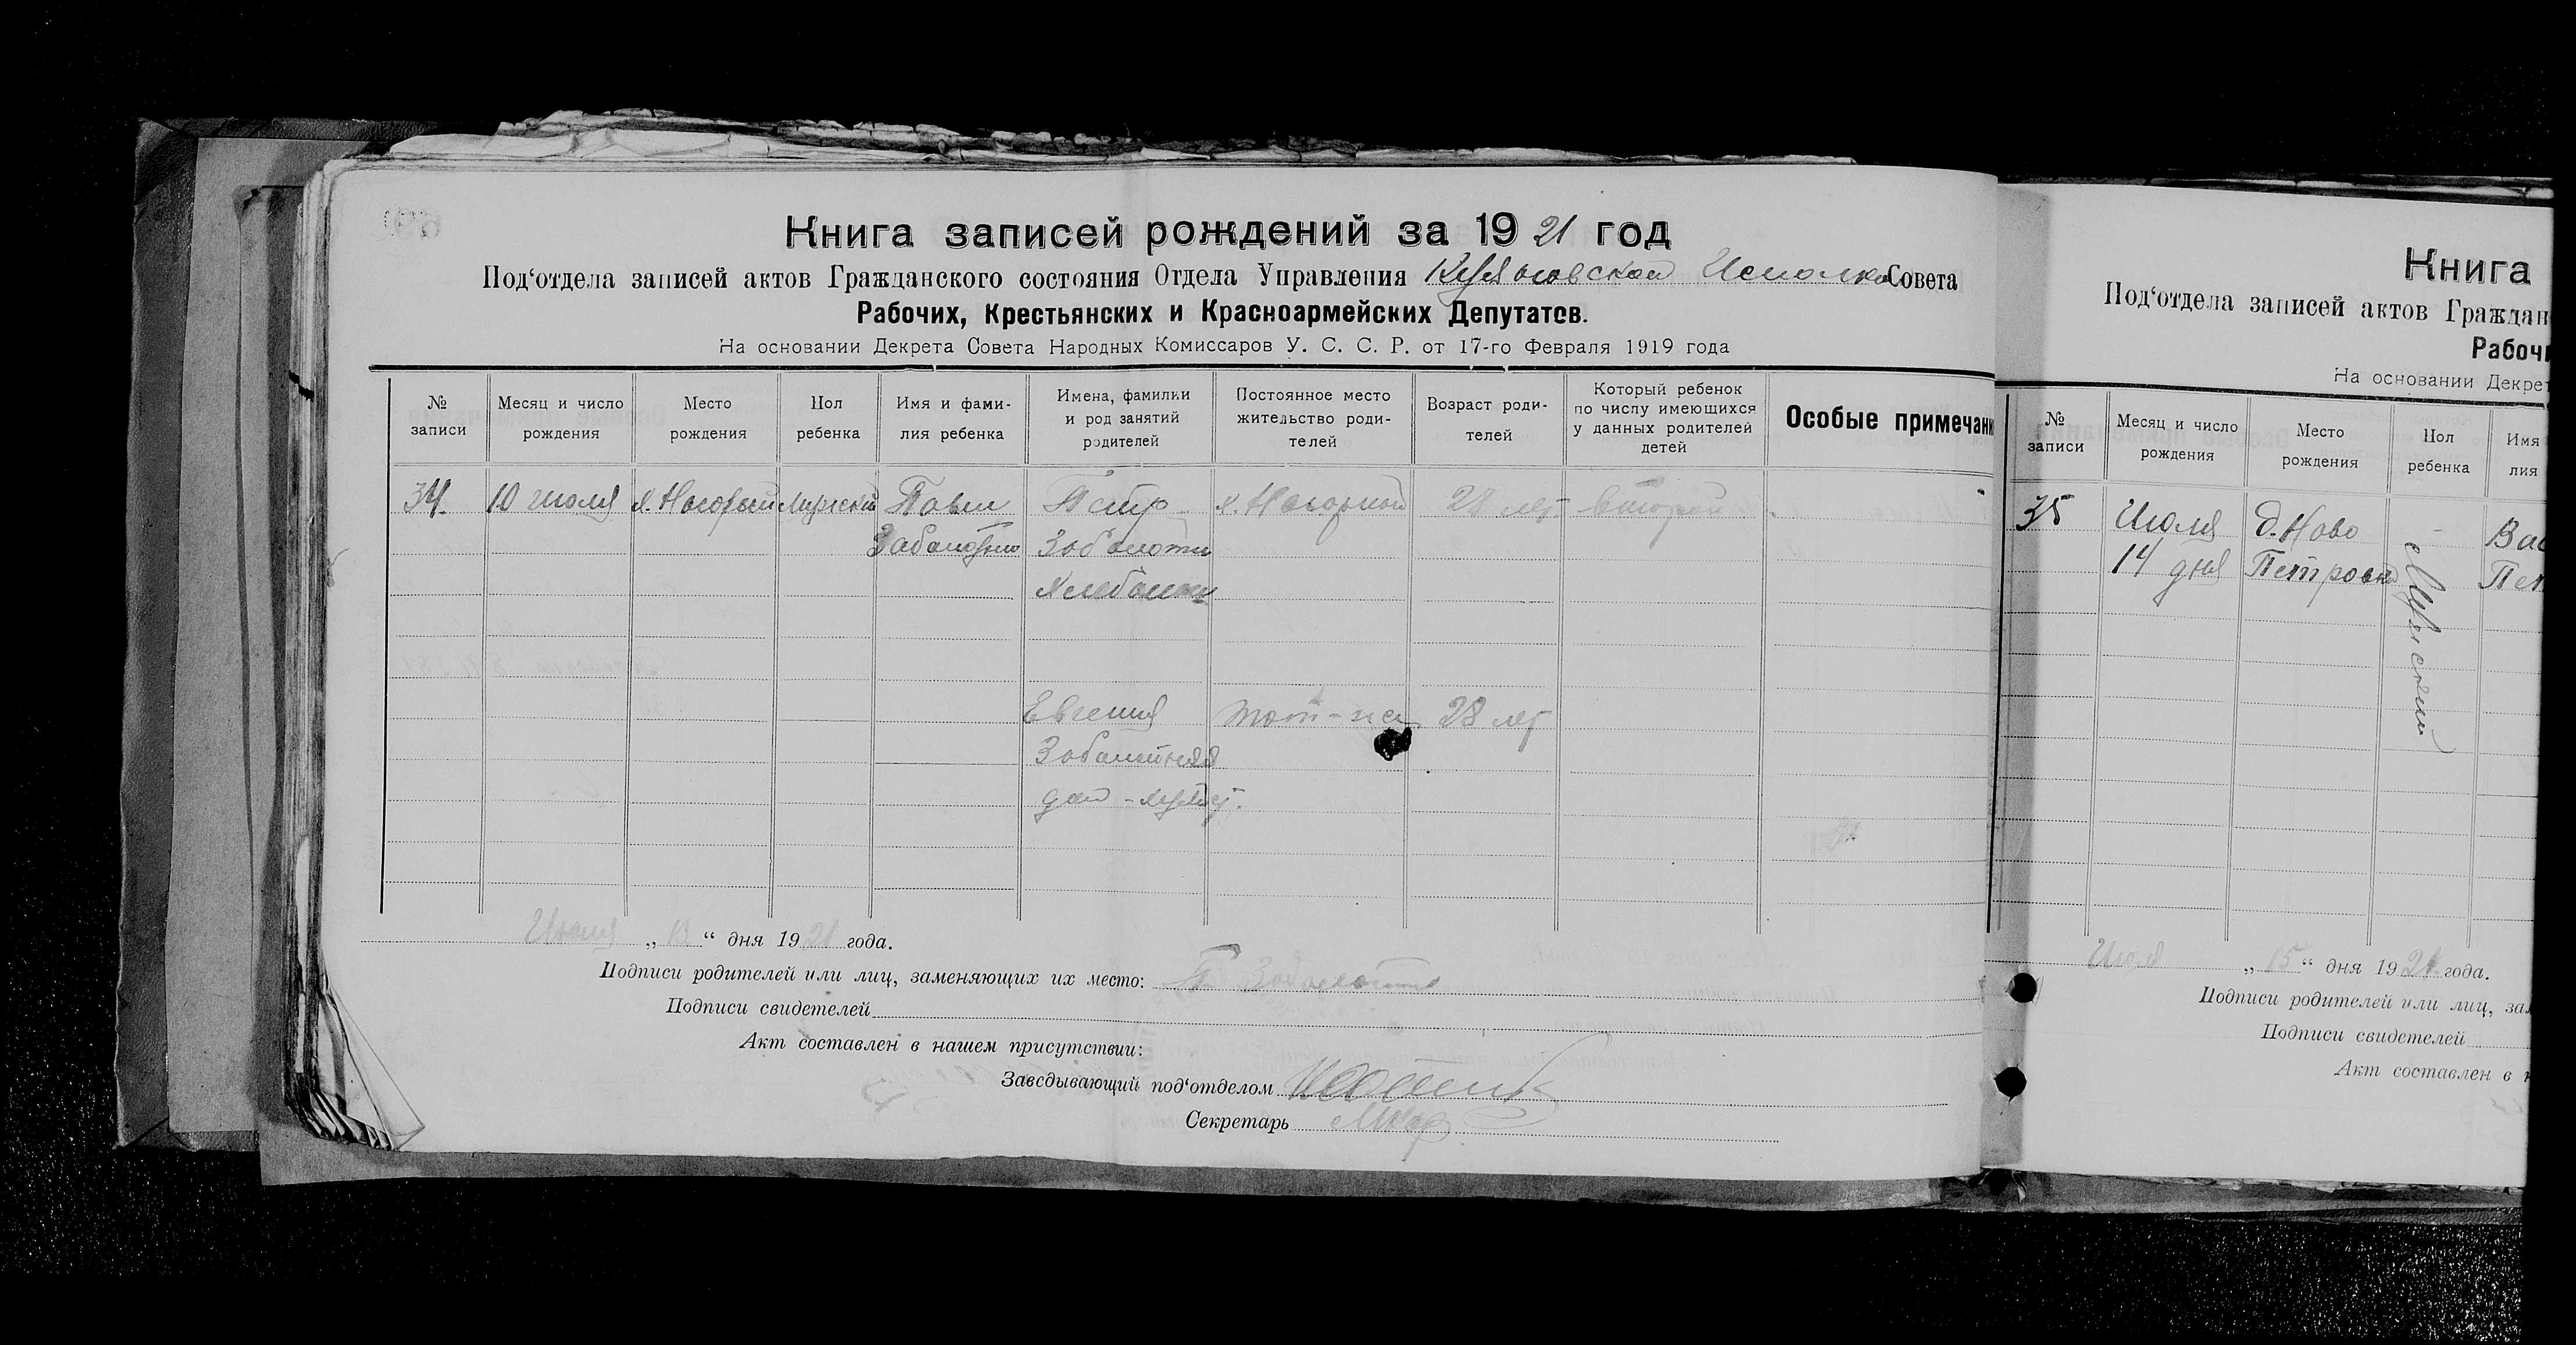 Книга записей рождений за 1921 год
Под‘отдела записей актов Гражданского состояния Отдела Управления Совета
Рабочих, Крестьянских и Красноармейских Депутатов.
На основании Декрета Совета Народных Комиссаров У. С. С. Р. от 17-го Февраля 1919 года
№ записи
Месяц и число рождения
Место рождения
Пол ребенка
Имя и фами-
лия ребенка
Имена, фамилии
и род занятий
родителей
Постоянное место
жительство роди-
телей
Возраст роди-
телей
Который ребенок
по числу имеющихся
у данных родителей
детей
Особые примечани
34. 10 июля Павел Петр 28 лет второй
Евгения тот-же 28 лет
Июля „13“ дня 1921 года.
Подписи родителей или лиц, заменяющих их место: П
Подписи свидетелей
Акт составлен в нашем присутствии:
Заведывающий под‘отделом
Секретарь
Книга
Под‘отдела записей актов Граждан
Рабочи
На основании Декрет
№ записи
Месяц и число рождения
Место рождения
Пол ребенка
Имя
лия
35 Июля д. Ново Мужский Вас
14 дня Петровка Пет
Июля „15“ дня 1921 года.
Подписи родителей или лиц, зам
Подписи свидетелей
Акт составлен в н